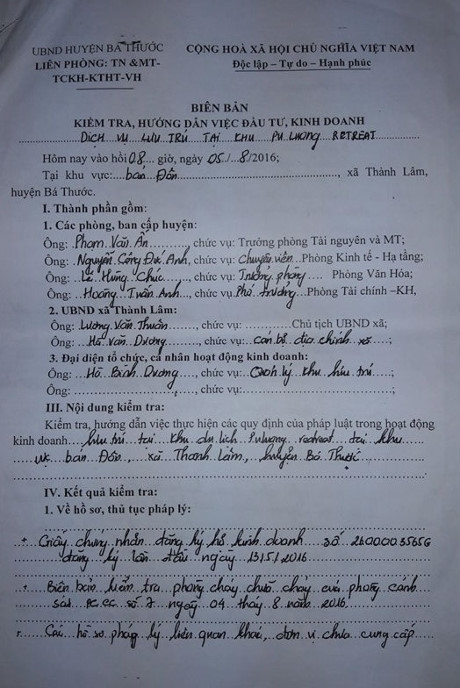 UBND HUYỆN BÁ THƯỚC
LIÊN PHÒNG: TN &MT-
TCKH-KTHT-VH
CỘNG HOÀ XÃ HỘI CHỦ NGHĨA VIỆT NAM
Độc lập – Tự do – Hạnh phúc
BIÊN BẢN
KIỂM TRA, HƯỚNG DẪN VIỆC ĐẦU TƯ, KINH DOANH
DỊCH VỤ LƯU TRÚ TẠI KHU PU LUONG RETREAT
Hôm nay vào hồi 08 giờ, ngày 05/8/2016;
Tại khu vực: bản Đôn, xã Thành Lâm,
huyện Bá Thước.
I. Thành phần gồm:
1. Các phòng, ban cấp huyện:
Ông: Phạm Văn Ân, chức vụ: Trưởng phòng Tài nguyên và MT;
Ông: Nguyễn Công Đức Anh, chức vụ: Chuyên viên Phòng Kinh tế - Hạ tầng;
Ông: Lê Hùng Chúc, chức vụ: Trưởng phòng Phòng Văn Hóa;
Ông: Hoàng Tuấn Anh, chức vụ: Phó trưởng Phòng Tài chính –KH,
2. UBND xã Thành Lâm:
Ông: Lương Văn Thuân, chức vụ: Chủ tịch UBND xã;
Ông: Hà Văn Dương, chức vụ: cán bộ địa chính xã;
3. Đại diện tổ chức, cá nhân hoạt động kinh doanh:
Ông: Hà Bình Dương, chức vụ: Quản lý khu lưu trú;
Ông: , chức vụ: ;
III. Nội dung kiểm tra:
Kiểm tra, hướng dẫn việc thực hiện các quy định của pháp luật trong hoạt động
kinh doanh lưu trú tại khu du lịch Puluong retreat tại khu
vực bản Đôn, xã Thành Lâm, huyện Bá Thước
IV. Kết quả kiểm tra:
1. Về hồ sơ, thủ tục pháp lý:
+ Giấy chứng nhận đăng ký hộ kinh doanh số
đăng ký lần đầu ngày 13/5/2016
+ Biên bản kiểm tra phòng cháy chữa cháy của phòng cảnh
sát PCCC số 7 ngày 04 tháng 8 năm 2016
+ Các hồ sơ pháp lý liên quan khác, đơn vị chưa cung cấp